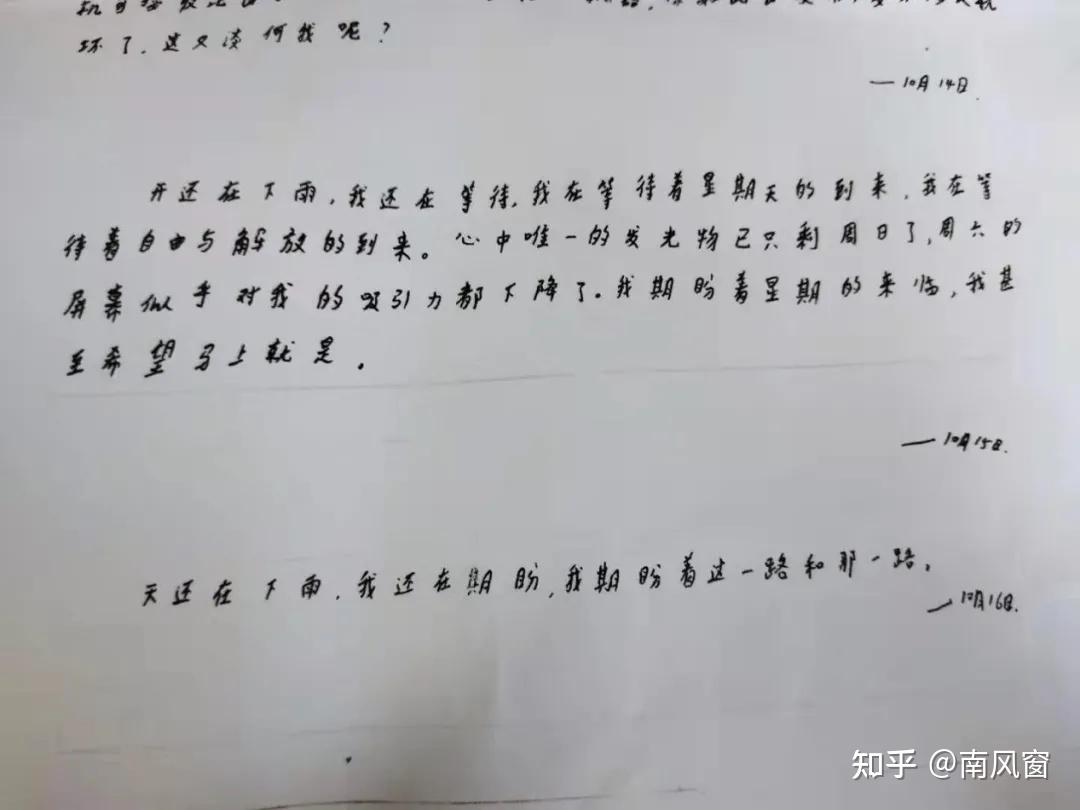 坏了，这又谈何我呢？
—10月14日.
开还在下雨，我还在等待，我在等待着星期天的到来，我在等
待着自由与解放的到来。心中唯一的发光物已只剩周日了，周六的
屏幕似乎对我的吸引力都下降了。我期盼着星期的来临，我甚
至希望马上就是。
—10月15日.
天还在下雨，我还在期盼，我期盼着这一路和那一路。
—10月16日.
知乎 @南风窗